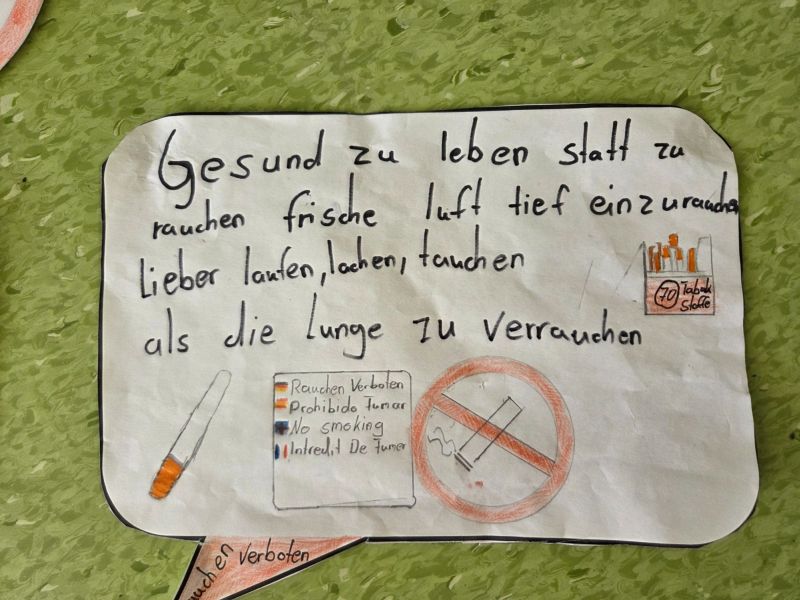 Gesund zu leben statt zu
rauchen frische luft tief einzurauchen
Lieber laufen, lachen, tauchen
als die lunge zu verrauchen
70 Tabak
Stoffe
Rauchen Verboten
Prohibido Fumar
No smoking
Intredit De Fumer
auchen Verboten